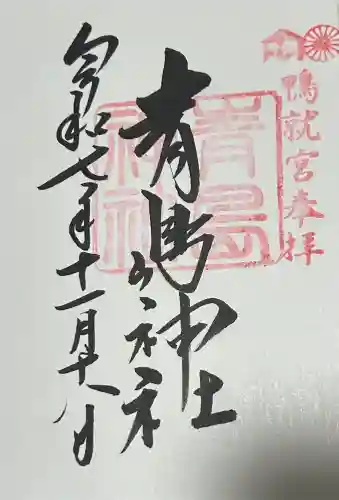 鴨就宮奉拝
青島神社
青島
神社
令和七年十一月十八日